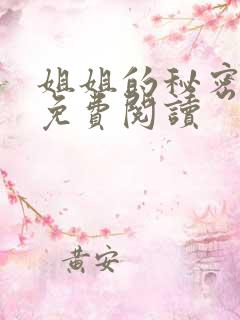 姐姐的秘密
免費閱讀
黃安